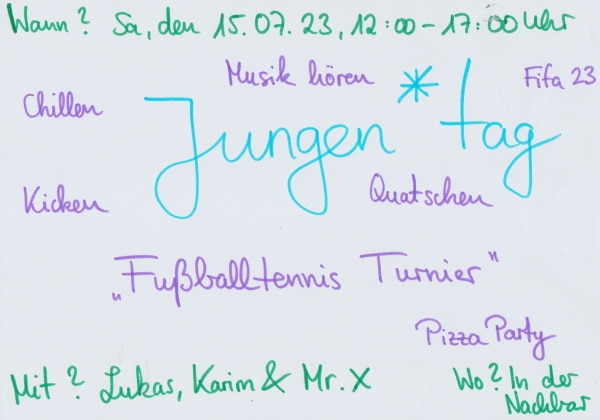 Wann? Sa, den 15.07.23, 12:00-17:00 Uhr
Musik hören
Fifa 23
Chillen
Jungen*tag
Kicken
Quatschen
„Fußballtennis Turnier"
Pizza Party
Mit? Lukas, Karim & Mr. X
Wo? In der
Nachbar